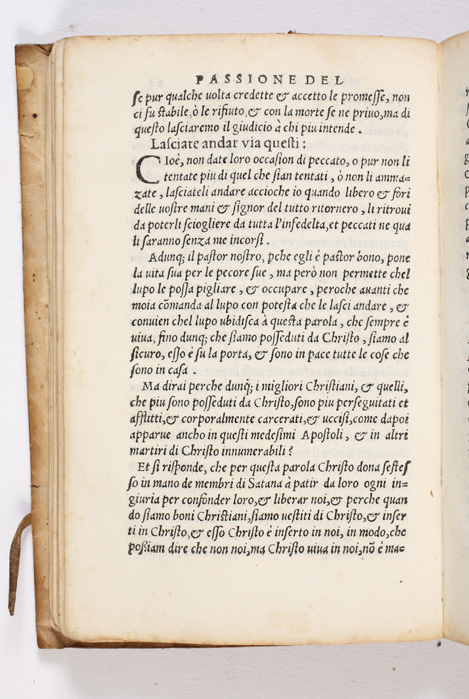 PASSIONE DEL
se pur qualche uolta credette & accetto le promesse, non
ci fu stabile, ò le rifiuto, & con la morte se ne priuo, ma di
questo lasciaremo il giudicio à chi piu intende.
Lasciate andar via questi:
Cioè, non date loro occasion di peccato, o pur non li
tentate piu di quel che sian tentati, ò non li amma-
zate, lasciateli andare accioche io quando libero & fori
delle uostre mani & signor del tutto ritornero, li ritroui
da poterli sciogliere da tutta l'infedelta, et peccati ne qua
li saranno senza me incorsi.
Adunq; il pastor nostro, pche egli è pastor bono, pone
la uita sua per le pecore sue, ma però non permette chel
lupo le possa pigliare, & occupare, peroche auanti che
moia cōmanda al lupo con potesta che le lasci andare, &
conuien chel lupo ubidisca à questa parola, che sempre è
uiua, fino dunq; che siamo posseduti da Christo, siamo al
sicuro, esso è su la porta, & sono in pace tutte le cose che
sono in casa.
Ma dirai perche dunq; i migliori Christiani, & quelli,
che piu sono posseduti da Christo, sono piu perseguitati et
afflitti, & corporalmente carcerati, & uccisi, come dapoi
apparue ancho in questi medesimi Apostoli, & in altri
martiri di Christo innumerabili?
Et si risponde, che per questa parola Christo dona sestes
so in mano de membri di Satana à patir da loro ogni in=
giuria per confonder loro, & liberar noi, & perche quan
do siamo boni Christiani, siamo uestiti di Christo, & inser
ti in Christo, & esso Christo è inserto in noi, in modo, che
possiam dire che non noi, ma Christo uiua in noi, nō è ma=